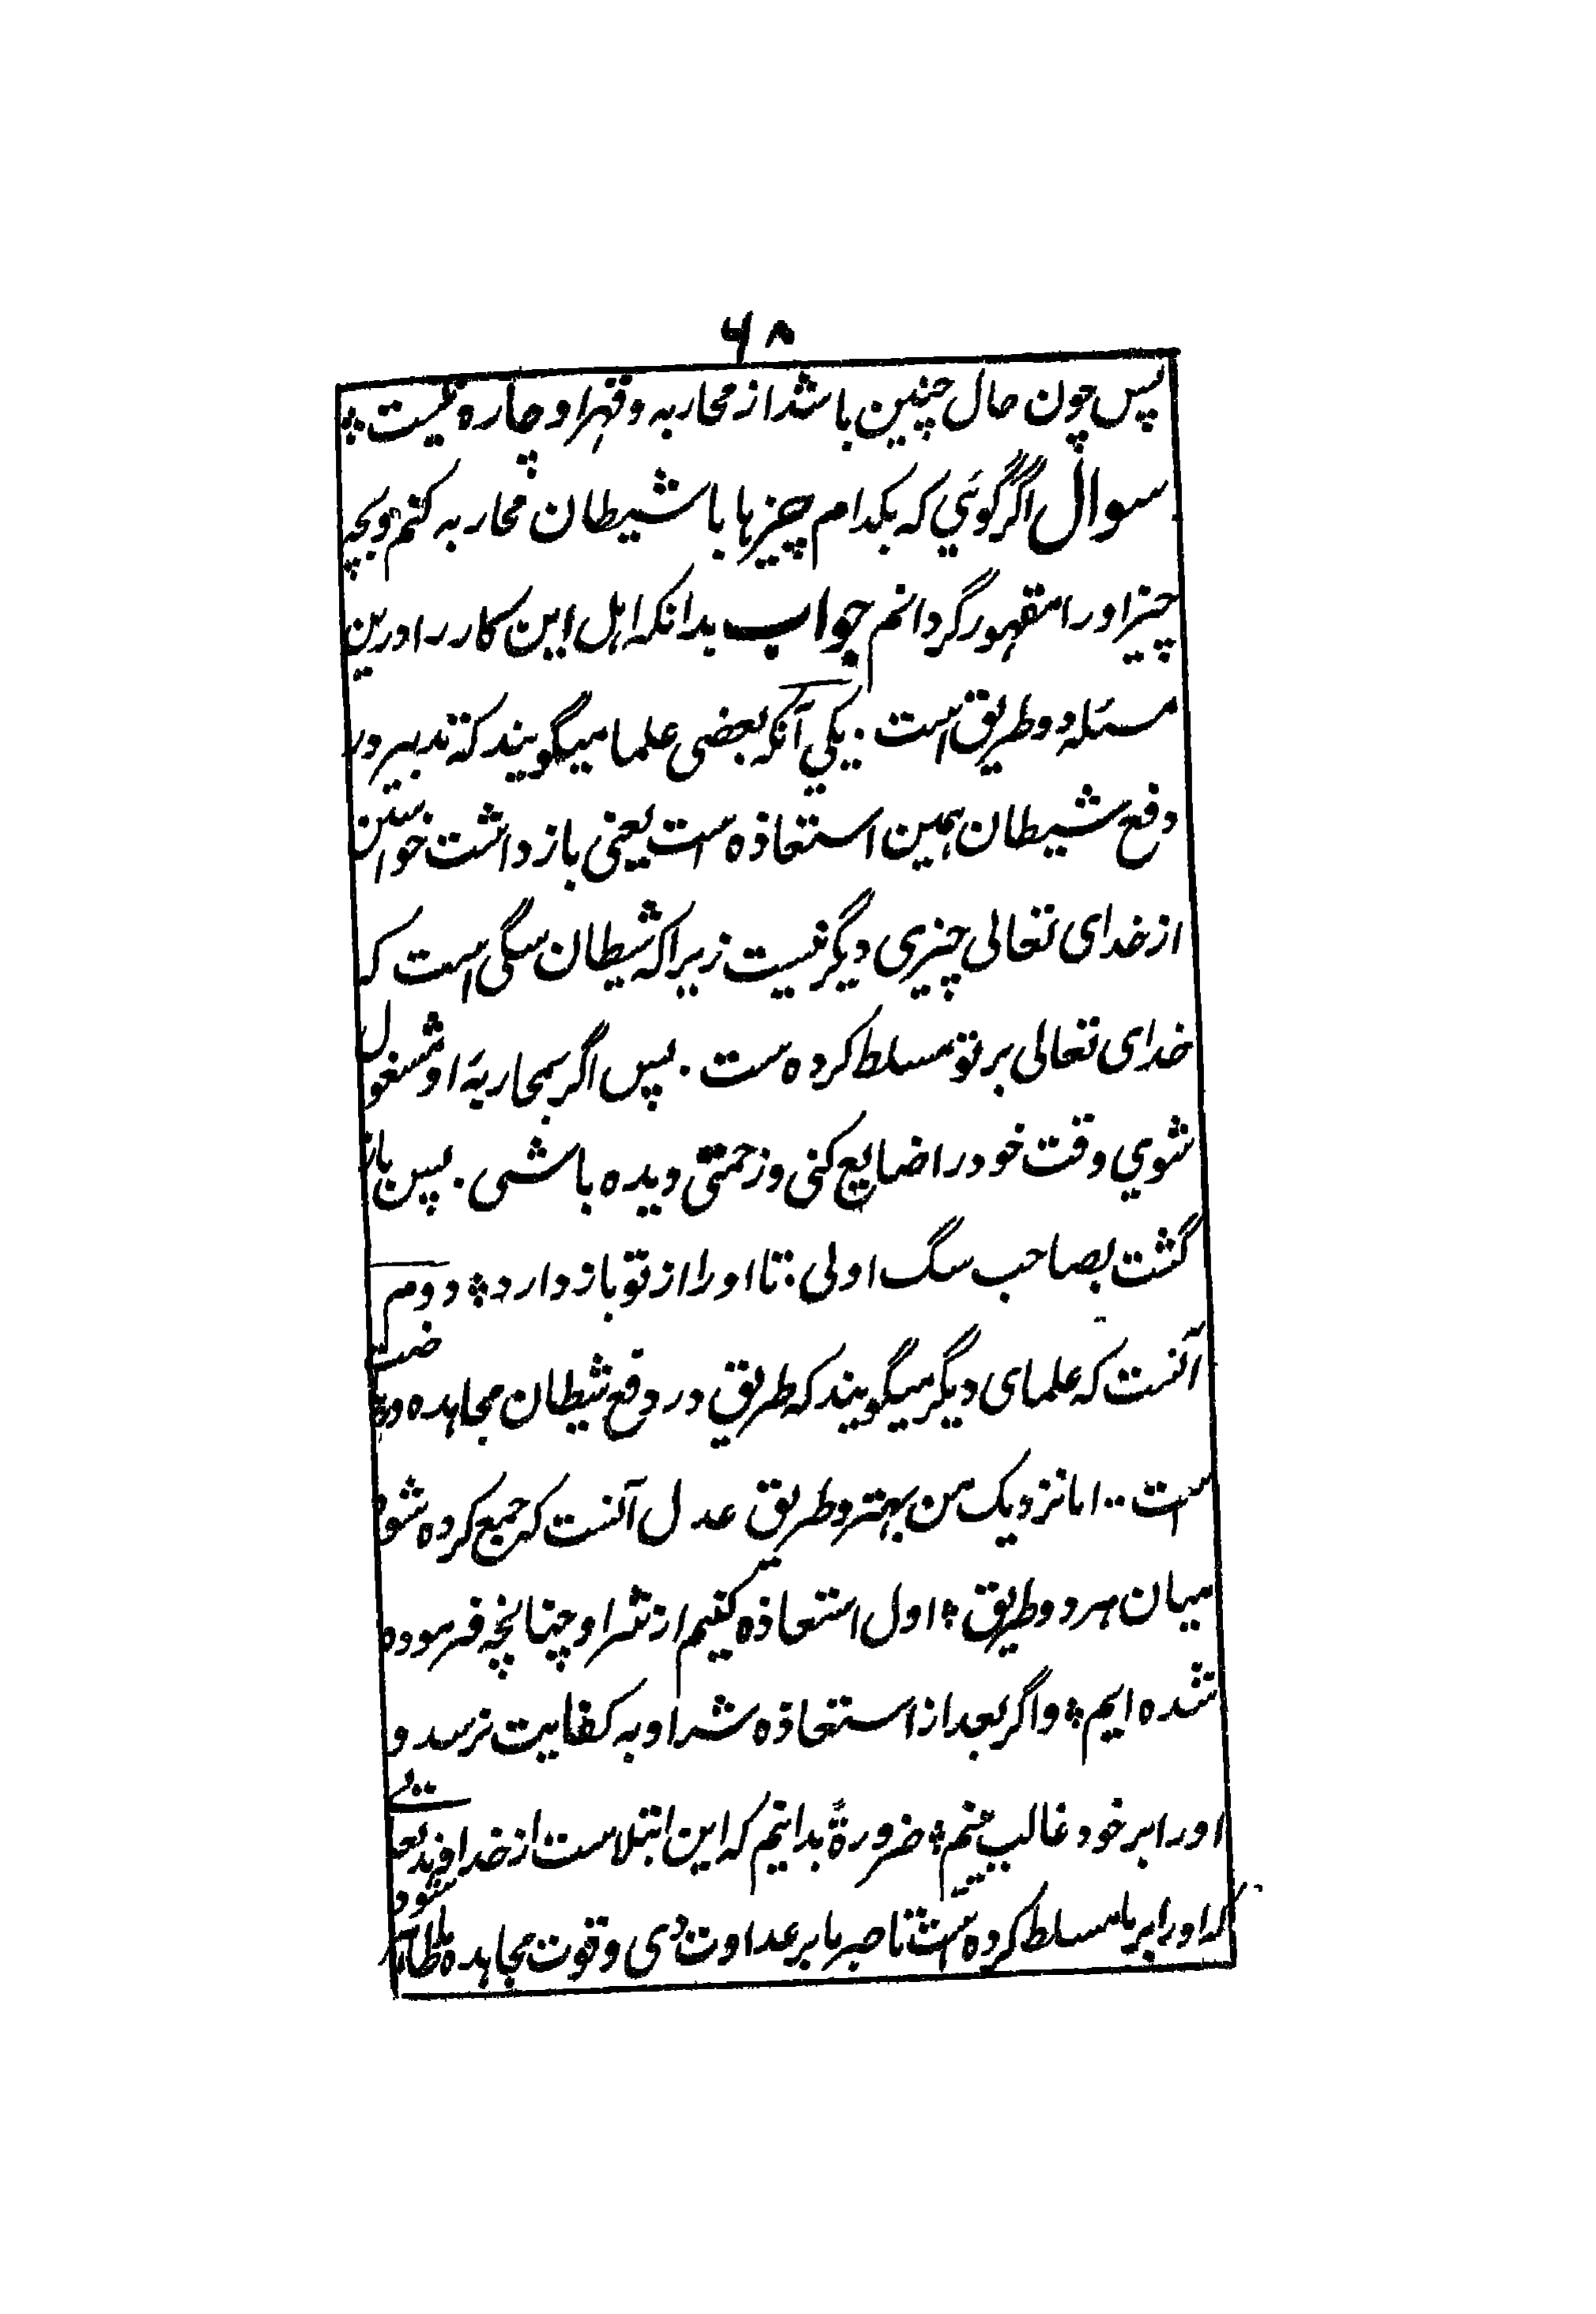 ۶۸
پس چون حال چنین باشد از محاربه و قهر او چاره نیست
سوال اگر گوئي که بکدام چیزها با شیطان محاربه کنم و بچه
چیز او را مقهور گردانم جواب بدانکه اهل این کار را درین
مسئله دو طریق است . یکي آنکه بعضی علما میگویند که تدبیر در
دفع شیطان همین استعاذه است یعنی بازداشت خواستن
از خدای تعالی چیزی دیگر نیست زیرا که شیطان سگی است که
خدای تعالی بر تو مسلط کرده ست . پس اگر بمحاربهٔ او مشغول
شوي وقت خود را ضایع کنی و زحمتی دیده باشی . پس باز
گشت بصاحب سگ اولی . تا او را از تو باز دارد دوم
آنست که علمای دیگر میگویند که طریق در دفع شیطان مجاهده و ریاضت
ست .. اما نزدیک من بهتر و طریق عدل آنست که جمع کرده شود
میان هر دو طریق اول استعاذه کنیم از شر او چنانچه فرموده
شده ایم و اگر بعد از استعاذه شر او به کفایت نرسد و
او را بر خود غالب بینیم ضرورةً بدانیم که این ابتلاست از خداوند تعالی
که او را بر ما مسلط کرده است تا صبر ما بر عداوت وی و قوت مجاهده ما ظاهر شود